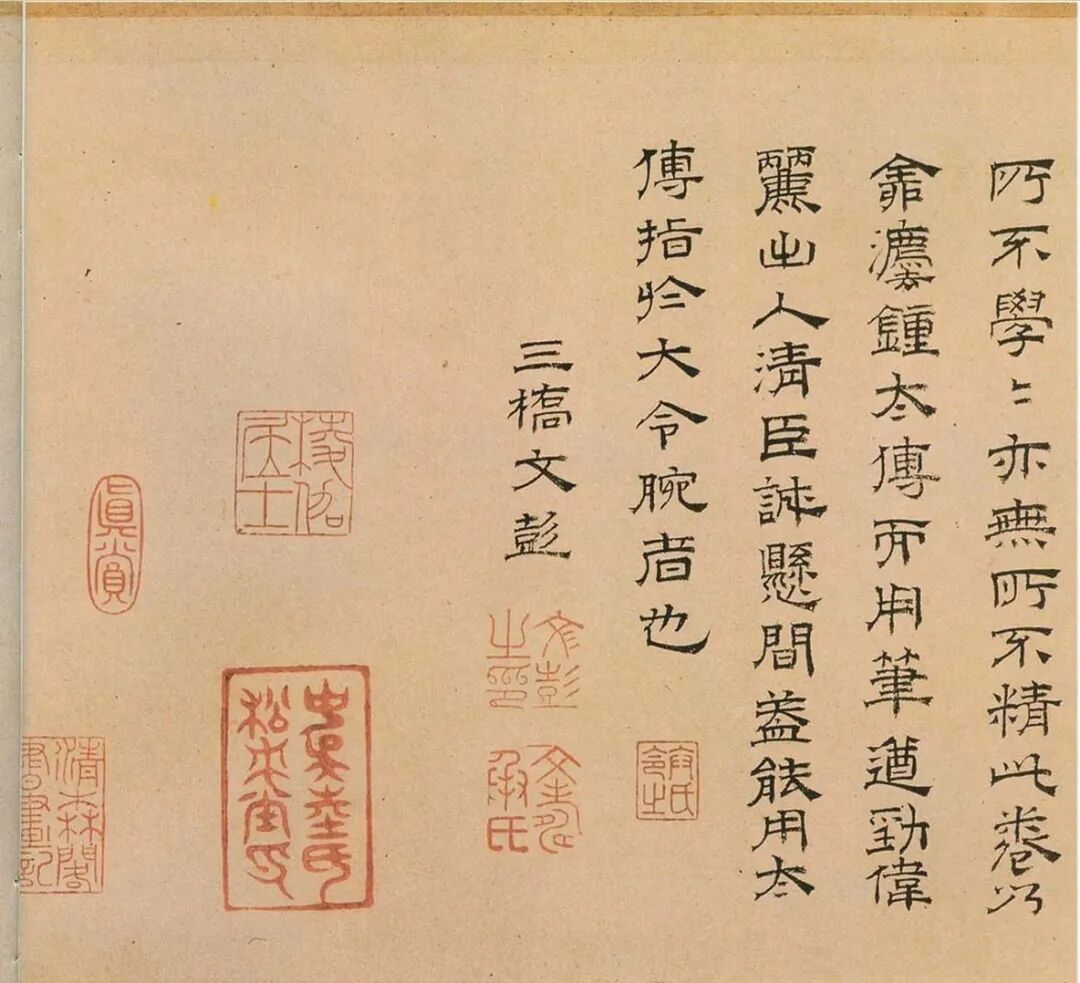 所不學〻亦無所不精此卷以
灋鍾太傅而用筆遒勁偉
麗出人清臣誠懸間蓋能用太
傅指於大令腕者也
三橋文彭
文彭之印
文壽承氏
棱伽居士
真賞
清森閣書畫記